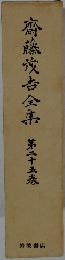 齋藤茂吉全集
第二十五巻
岩波書店